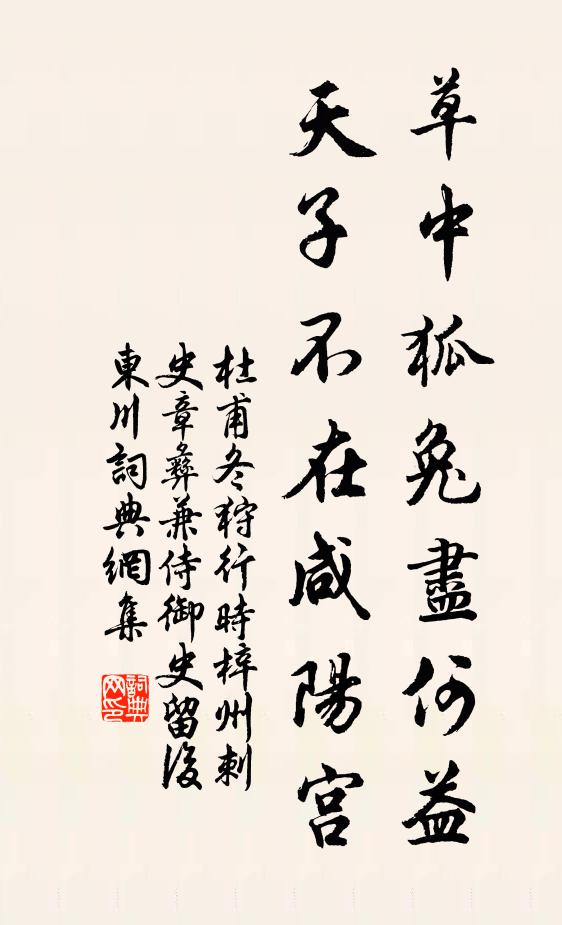 草中狐兔盡何益
天子不在咸陽宮
杜甫冬狩行時梓州刺
史章彝兼侍御史留後
東川詞典網集
詞典
网印